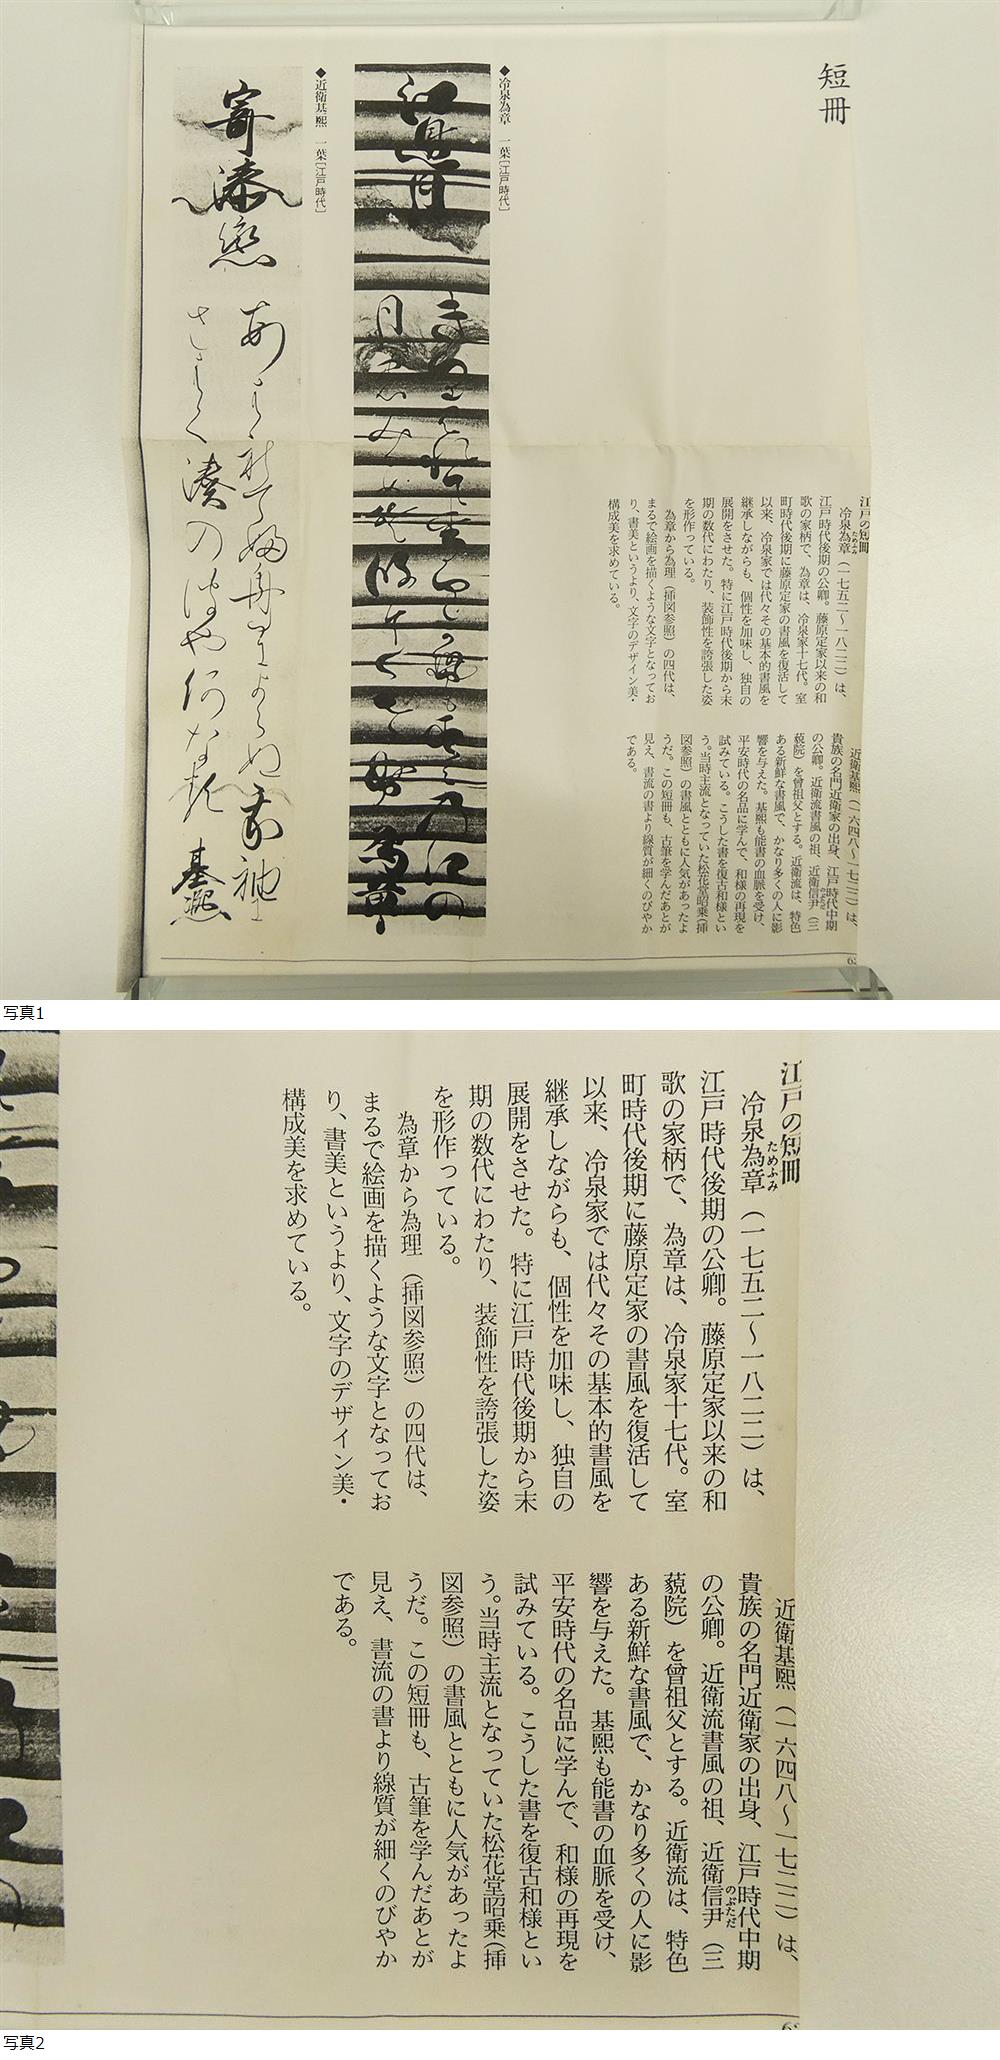 短冊
江戸の短冊
冷泉為章（一七五二～一八二二）は、
ためふみ
江戸時代後期の公卿。藤原定家以来の和
歌の家柄で、為章は、冷泉家十七代。室
町時代後期に藤原定家の書風を復活して
以来、冷泉家では代々その基本的書風を
継承しながらも、個性を加味し、独自の
展開をさせた。特に江戸時代後期から末
期の数代にわたり、装飾性を誇張した姿
を形作っている。
為章から為理（挿図参照）の四代は、
まるで絵画を描くような文字となってお
り、書美というより、文字のデザイン美・
構成美を求めている。
近衛基熙（一六四八～一七二二）は、
貴族の名門近衛家の出身、江戸時代中期
の公卿。近衛流書風の祖、近衛信尹（三
のぶただ
藐院）を曾祖父とする。近衛流は、特色
ある新鮮な書風で、かなり多くの人に影
響を与えた。基熙も能書の血脈を受け、
平安時代の名品に学んで、和様の再現を
試みている。こうした書を復古和様とい
う。当時主流となっていた松花堂昭乗（挿
図参照）の書風とともに人気があったよ
うだ。この短冊も、古筆を学んだあとが
見え、書流の書より線質が細くのびやか
である。
◆冷泉為章　一葉［江戸時代］
江月
為章
◆近衛基熙　一葉［江戸時代］
寄湊戀
あまを舟よらぬ我袖に
さはく湊の波や何なる
基熙
写真1
江戸の短冊
冷泉為章（一七五二～一八二二）は、
ためふみ
江戸時代後期の公卿。藤原定家以来の和
歌の家柄で、為章は、冷泉家十七代。室
町時代後期に藤原定家の書風を復活して
以来、冷泉家では代々その基本的書風を
継承しながらも、個性を加味し、独自の
展開をさせた。特に江戸時代後期から末
期の数代にわたり、装飾性を誇張した姿
を形作っている。
為章から為理（挿図参照）の四代は、
まるで絵画を描くような文字となってお
り、書美というより、文字のデザイン美・
構成美を求めている。
近衛基熙（一六四八～一七二二）は、
貴族の名門近衛家の出身、江戸時代中期
の公卿。近衛流書風の祖、近衛信尹（三
のぶただ
藐院）を曾祖父とする。近衛流は、特色
ある新鮮な書風で、かなり多くの人に影
響を与えた。基熙も能書の血脈を受け、
平安時代の名品に学んで、和様の再現を
試みている。こうした書を復古和様とい
う。当時主流となっていた松花堂昭乗（挿
図参照）の書風とともに人気があったよ
うだ。この短冊も、古筆を学んだあとが
見え、書流の書より線質が細くのびやか
である。
写真2